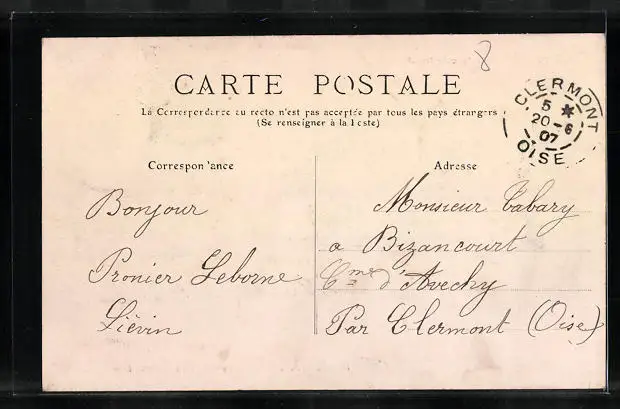 8
CARTE POSTALE
La Correspondance au recto n'est pas acceptée par tous les pays étrangers
(Se renseigner à la Poste)
CLERMONT
5 *
20-6
07
OISE
Correspondance
Bonjour
Pronier Leborne
Liévin
Adresse
Monsieur Cabary
a Bizancourt
Cme d'Avechy
Par Clermont (Oise)